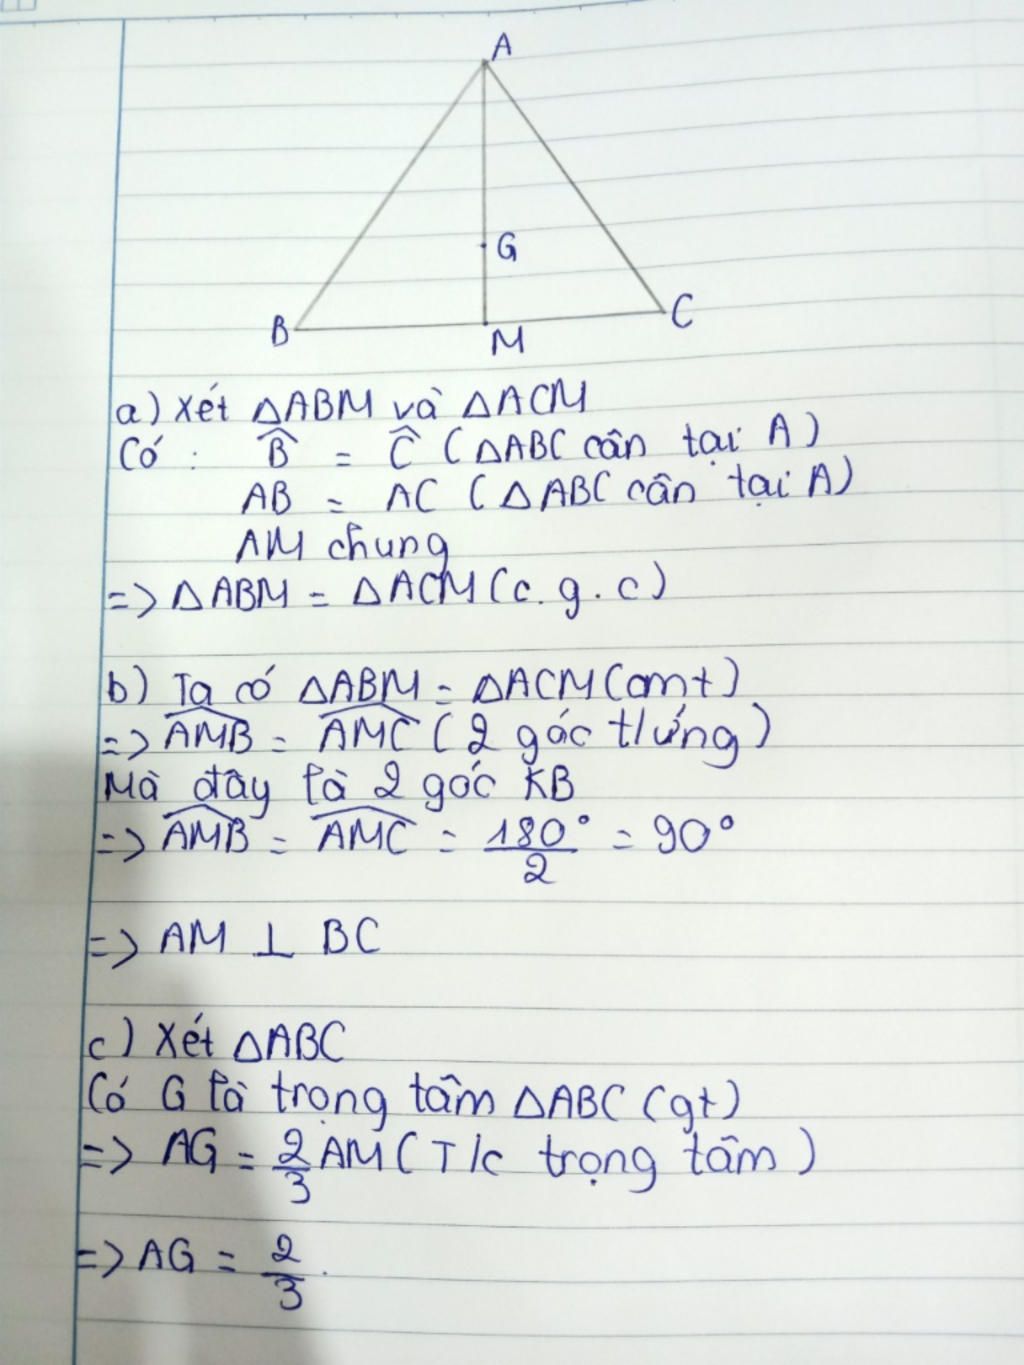 A
G
B
C
M
a) Xét ΔABM và ΔACM
Có : B̂ = Ĉ (ΔABC cân tại A)
AB = AC (ΔABC cân tại A)
AM chung
=> ΔABM = ΔACM (c.g.c)
b) Ta có ΔABM = ΔACM (cmt)
=> \widehat{AMB} = \widehat{AMC} (2 góc t/ứng)
Mà đây là 2 góc KB
=> \widehat{AMB} = \widehat{AMC} = 180°/2 = 90°
=> AM ⊥ BC
c) Xét ΔABC
Có G là trọng tâm ΔABC (gt)
=> AG = 2/3 AM (T/c trọng tâm)
=> AG = 2/3 .